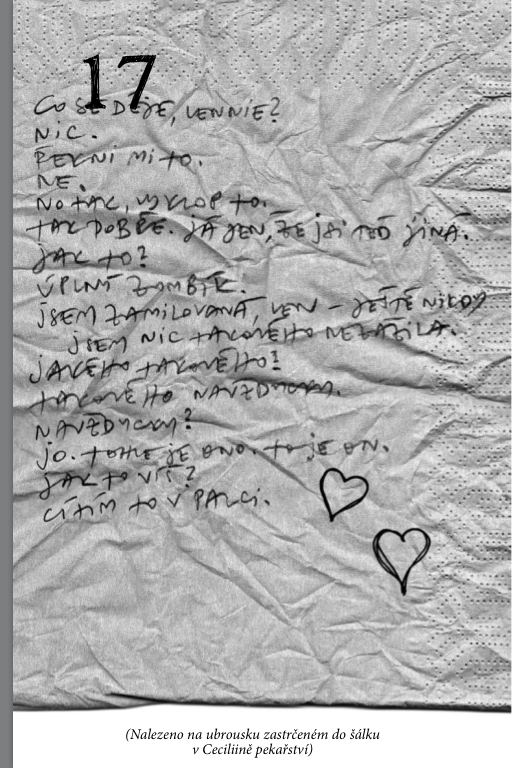 17
CO SE DĚJE, LENNIE?
NIC.
ŘEKNI MI TO.
NE.
NO TAK, VYKLOP TO.
TAK DOBŘE. JÁ JEN, ŽE JSI TEĎ JINÁ.
JAK TO?
ÚPLNÝ ZOMBÍK.
JSEM ZAMILOVANÁ, LEN – JEŠTĚ NIKDY
JSEM NIC TAKOVÉHO NEZAŽILA.
JAKÉHO TAKOVÉHO?
TAKOVÉHO NAVŽDYCKY.
NAVŽDYCKY?
JO. TOHLE JE ONO. TO JE ON.
JAK TO VÍŠ?
CÍTÍM TO V PALCI.
(Nalezeno na ubrousku zastrčeném do šálku
v Ceciliině pekařství)